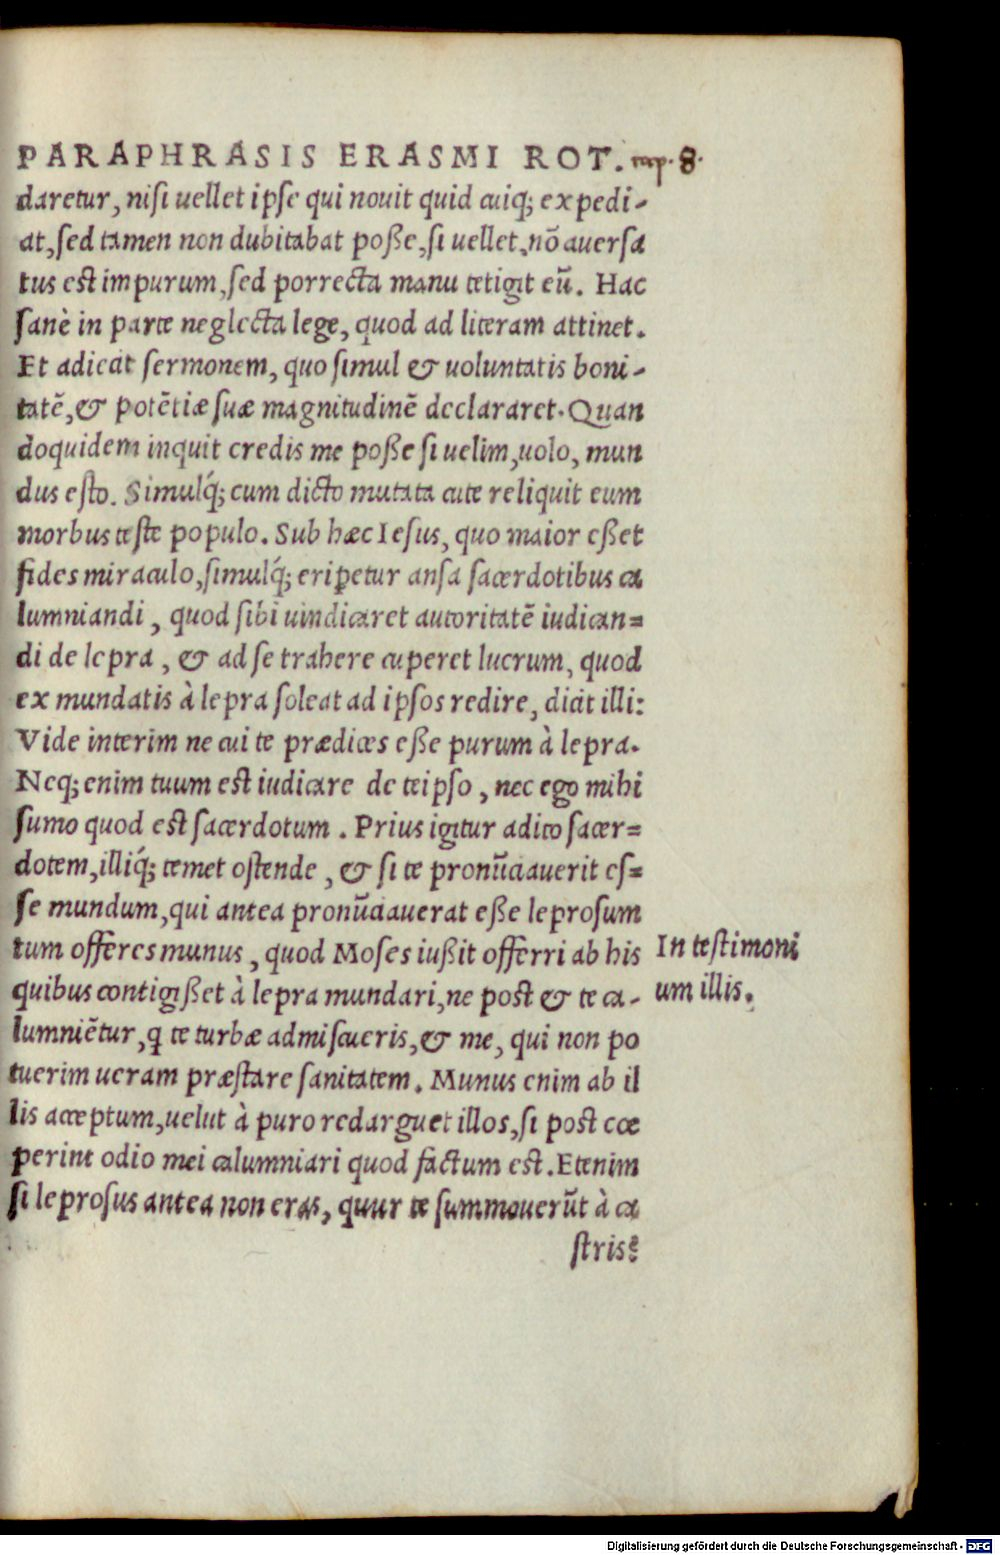 PARAPHRASIS ERASMI ROT. cap. 8.
daretur, nisi uellet ipse qui nouit quid cuiq; expedi-
at, sed tamen non dubitabat poße, si uellet, nõ auersa
tus est impurum, sed porrecta manu tetigit eũ. Hac
sanè in parte neglecta lege, quod ad literam attinet.
Et adiecit sermonem, quo simul & uoluntatis boni-
tatẽ, & potẽtiæ suæ magnitudinẽ declararet. Quan
doquidem inquit credis me poße si uelim, uolo, mun
dus esto. Simulq́; cum dicto mutata cute reliquit eum
morbus teste populo. Sub hæc Iesus, quo maior eßet
fides miraculo, simulq́; eriperetur ansa sacerdotibus ca
lumniandi, quod sibi uindicaret autoritatẽ iudican=
di de lepra, & ad se trahere cuperet lucrum, quod
ex mundatis à lepra soleat ad ipsos redire, dicit illi:
Vide interim ne cui te prædices eße purum à lepra.
Neq; enim tuum est iudicare de teipso, nec ego mihi
sumo quod est sacerdotum. Prius igitur adito sacer=
dotem, illiq́; temet ostende, & si te pronũciauerit es=
se mundum, qui antea pronũciauerat eße leprosum
tum offeres munus, quod Moses iußit offerri ab his
quibus contigißet à lepra mundari, ne post & te ca-
lumniẽtur, q te turbæ admiscueris, & me, qui non po
tuerim ueram præstare sanitatem. Munus enim ab il
lis acceptum, uelut à puro redarguet illos, si post cœ
perint odio mei calumniari quod factum est. Etenim
si leprosus antea non eras, quur te summouerũt à ca
stris?
In testimoni
um illis.
Digitalisierung gefördert durch die Deutsche Forschungsgemeinschaft - DFG